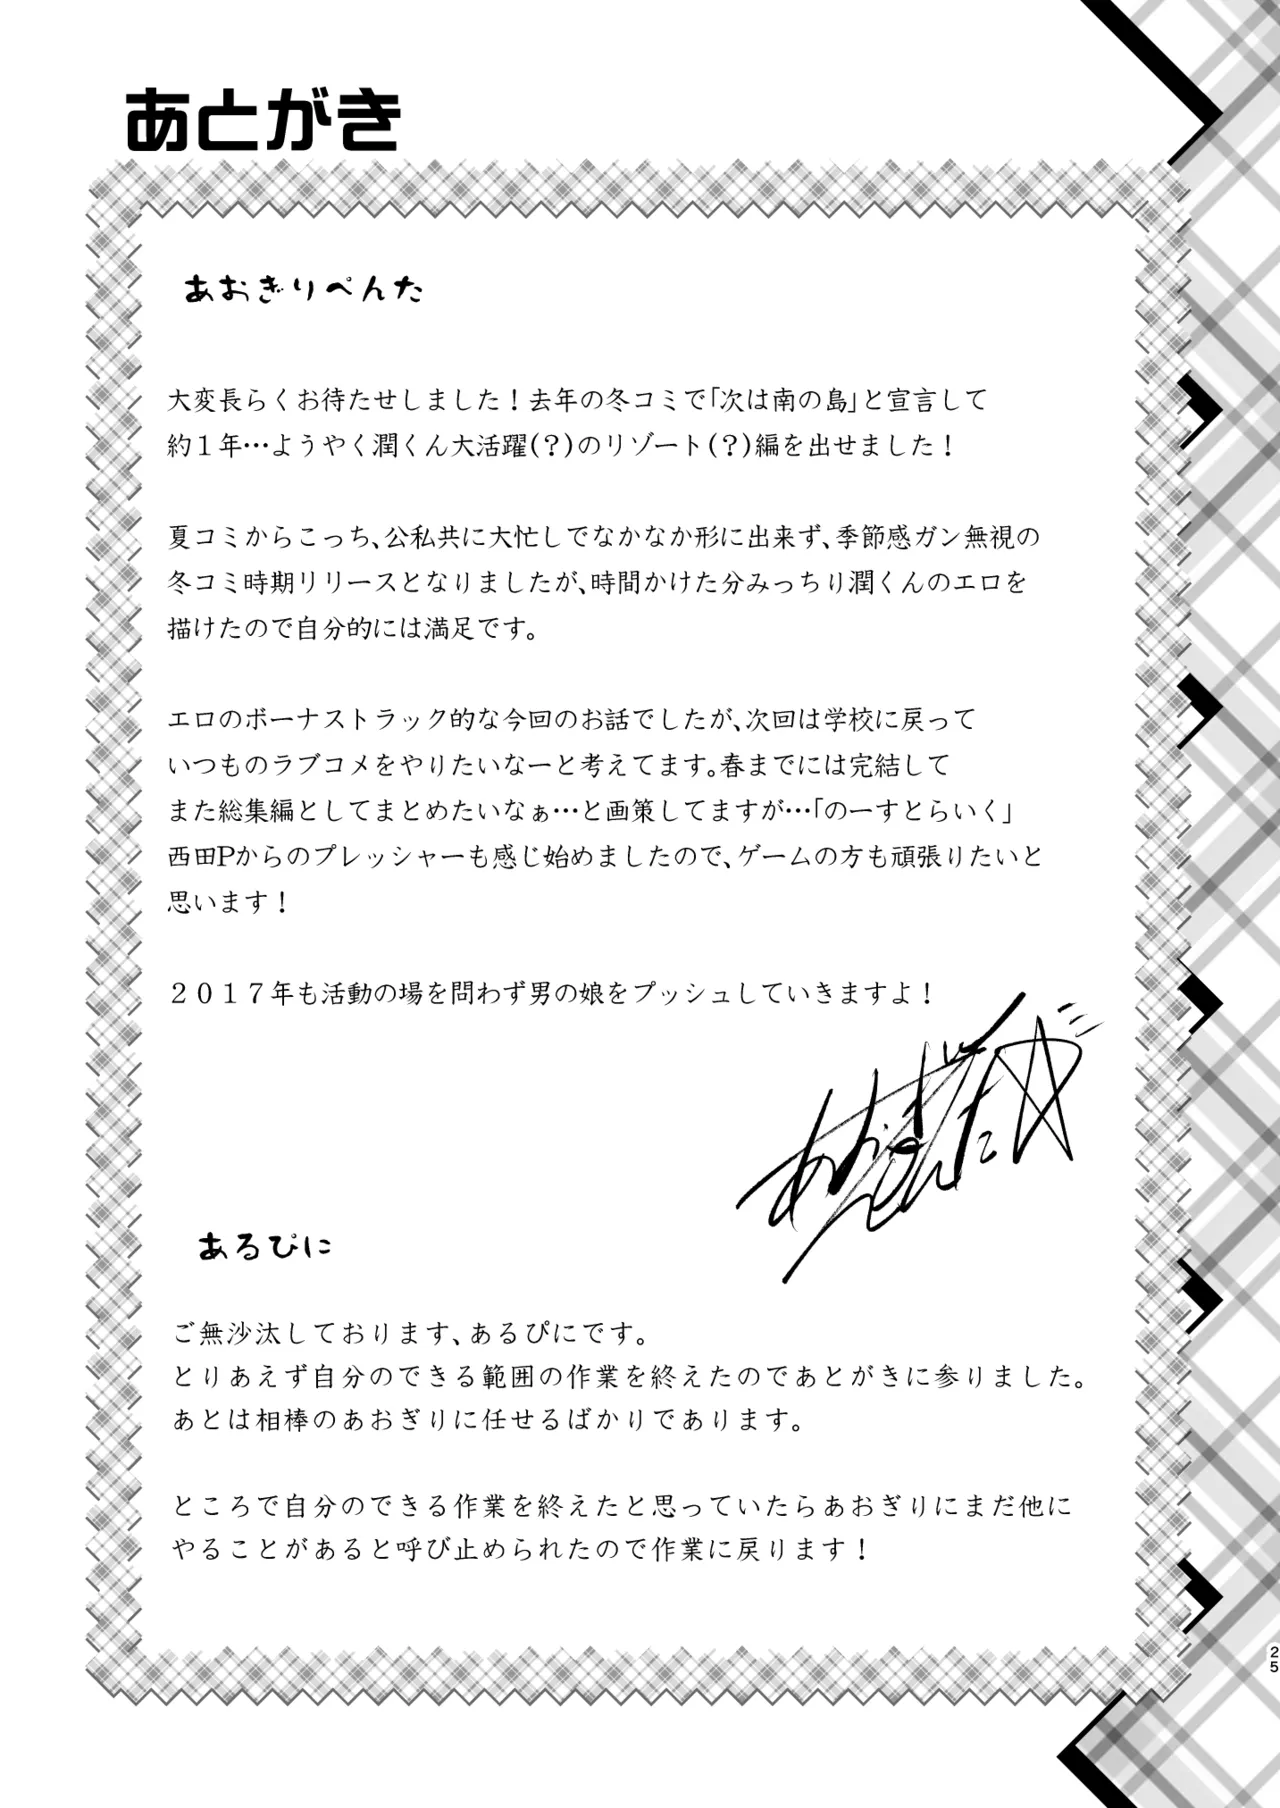 あとがき
あおぎりぺんた
大変長らくお待たせしました！去年の冬コミで「次は南の島」と宣言して
約１年…ようやく潤くん大活躍(？)のリゾート(？)編を出せました！
夏コミからこっち、公私共に大忙しでなかなか形に出来ず、季節感ガン無視の
冬コミ時期リリースとなりましたが、時間かけた分みっちり潤くんのエロを
描けたので自分的には満足です。
エロのボーナストラック的な今回のお話でしたが、次回は学校に戻って
いつものラブコメをやりたいなーと考えてます。春までには完結して
また総集編としてまとめたいなぁ…と画策してますが…「のーすとらいく」
西田Pからのプレッシャーも感じ始めましたので、ゲームの方も頑張りたいと
思います！
２０１７年も活動の場を問わず男の娘をプッシュしていきますよ！
あおぎりぺんた
あるぴに
ご無沙汰しております、あるぴにです。
とりあえず自分のできる範囲の作業を終えたのであとがきに参りました。
あとは相棒のあおぎりに任せるばかりであります。
ところで自分のできる作業を終えたと思っていたらあおぎりにまだ他に
やることがあると呼び止められたので作業に戻ります！
25